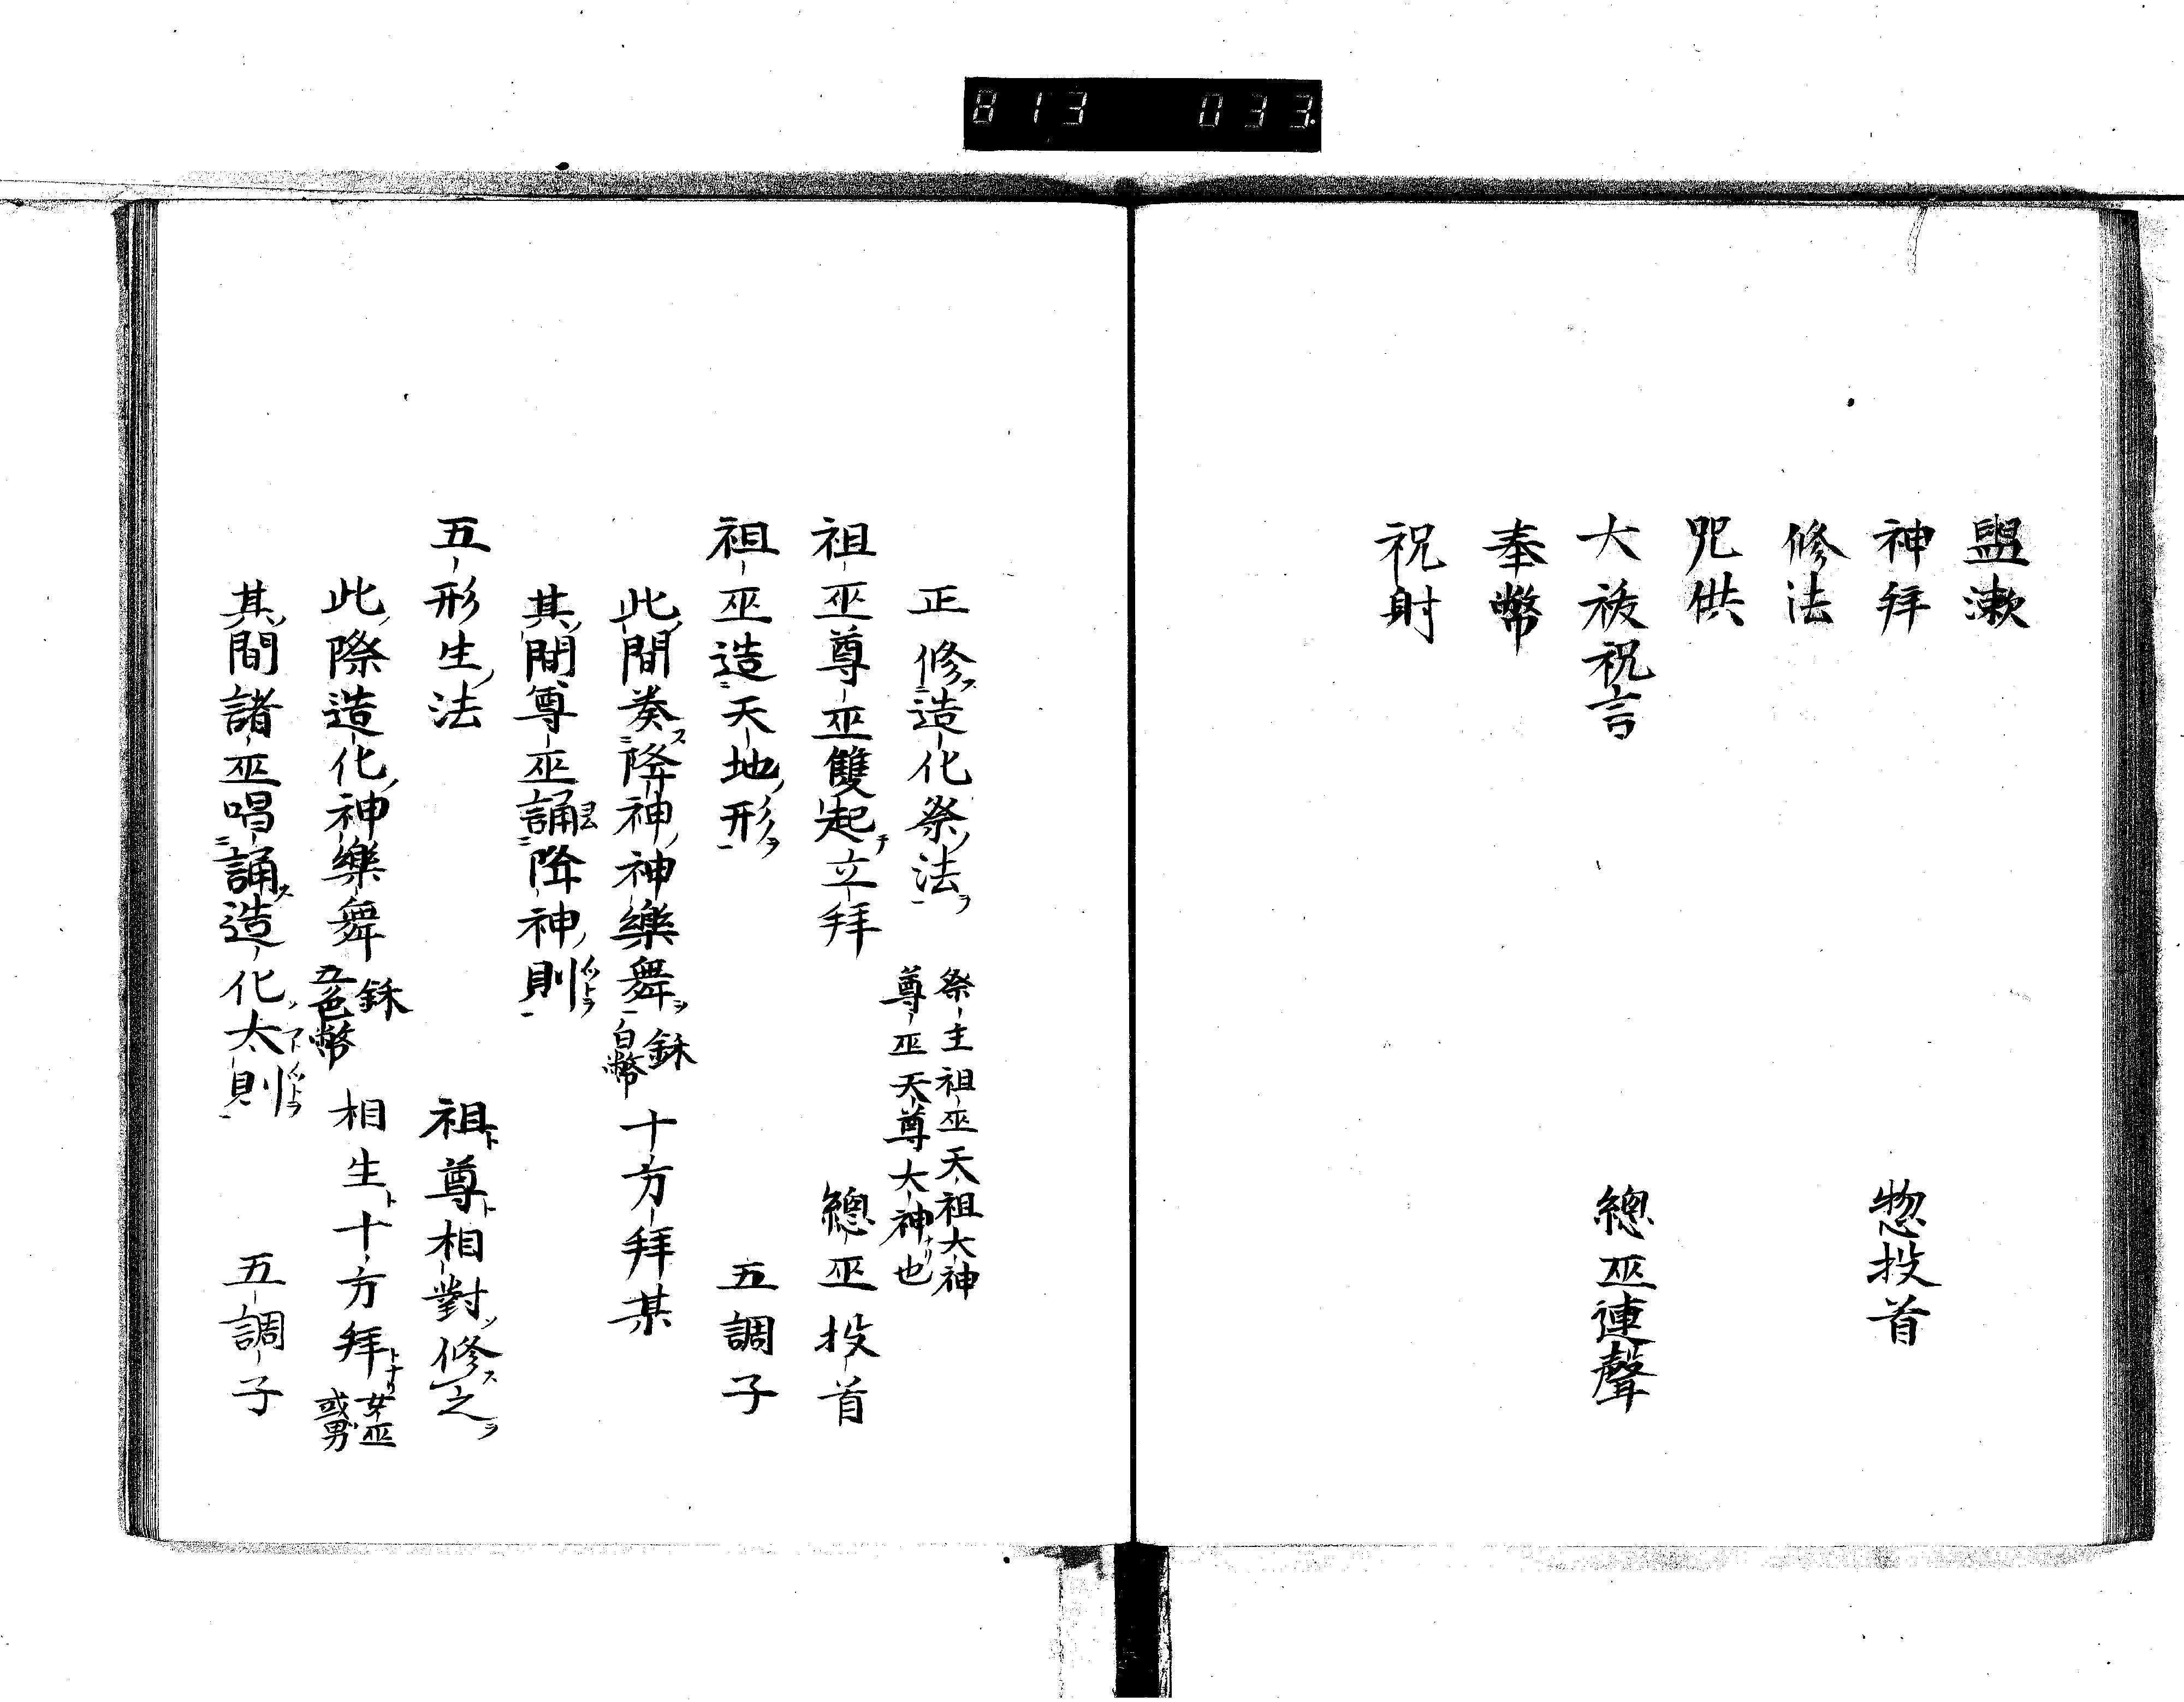 813 033
盥漱
神拜 惣投首
修法
咒供
大祓祝言 總巫連聲
奉幣
祝射
正修造化祭法 祭主祖巫天祖大神
尊巫天尊大神也
祖巫尊巫雙起立拜 總巫投首
祖巫造天地形 五調子
此間奏降神神樂舞 鉌
白幣 十方拜某
其間尊巫誦降神則
五形生法 祖尊相對修之
此際造化神樂舞 鉌
五色幣 相生十方拜 女巫
或男
其間諸巫唱誦造化太則 五調子